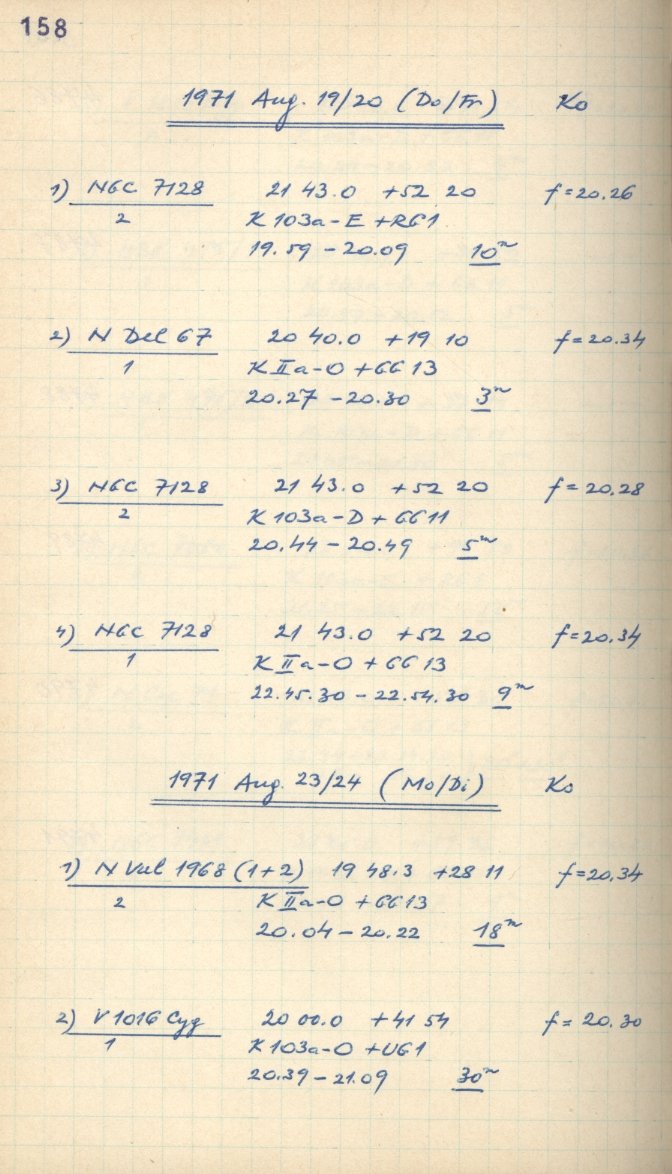 158
1971 Aug. 19/20 (Do/Fr) Ko
1) NGC 7128 21 43.0 +52 20 f=20.26
2 K 103a-E + RG1
19.59 - 20.09 10m
2) N Del 67 20 40.0 +19 10 f=20.34
1 K IIa-O + GG 13
20.27 - 20.30 3m
3) NGC 7128 21 43.0 +52 20 f=20.28
2 K 103a-D + GG 11
20.44 - 20.49 5m
4) NGC 7128 21 43.0 +52 20 f=20.34
1 K IIa-O + GG 13
22.45.30 - 22.54.30 9m
1971 Aug. 23/24 (Mo/Di) Ko
1) N Vul 1968 (1+2) 19 48.3 +28 11 f=20.34
2 K IIa-O + GG 13
20.04 - 20.22 18m
2) V 1016 Cyg 20 00.0 +41 54 f= 20.30
1 K 103a-O + UG1
20.39 - 21.09 30m